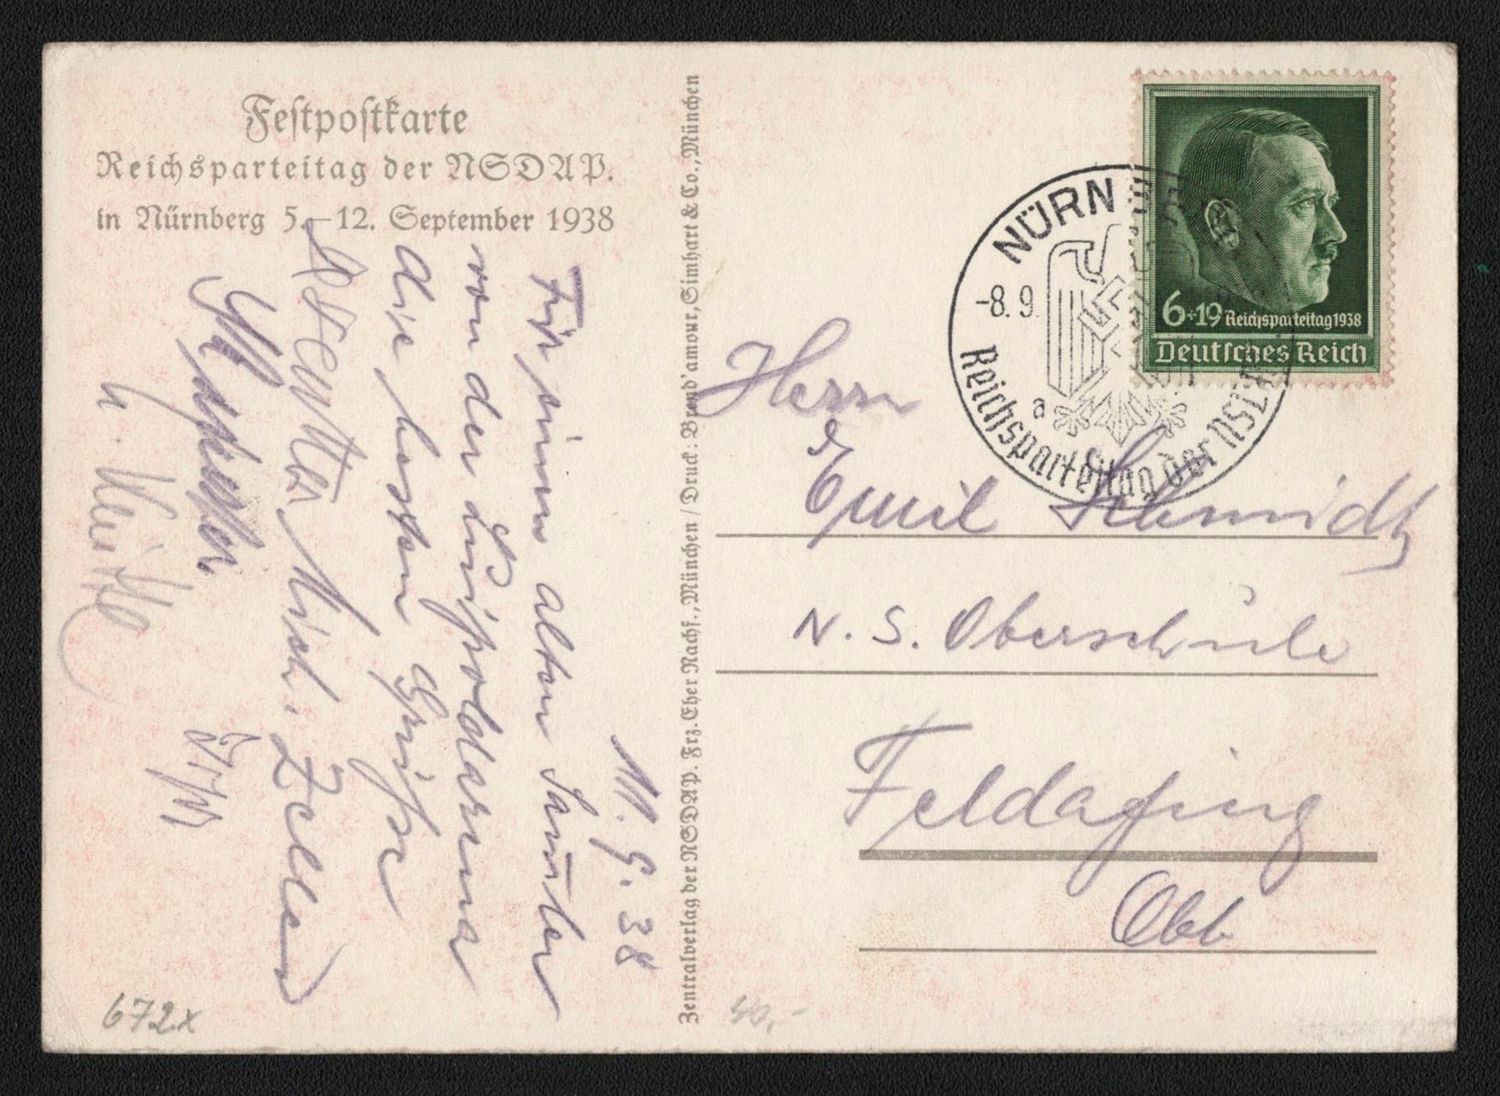 Festpostkarte
Reichsparteitag der NSDAP.
in Nürnberg 5.–12. September 1938
11. 9. 38
alten
von der Luitpoldarena
die besten Grüße
Mich. Zeller
u.
672x
Zentralverlag der NSDAP. Frz. Eher Nachf., München / Druck: Brend'amour, Simhart & Co., München
40,-
6+19 Reichsparteitag 1938
Deutsches Reich
NÜRNBERG
-8. 9.
a
Reichsparteitag der NSDAP
Herrn
Emil Schmidt
N. S. Oberschule
Feldafing
Obb